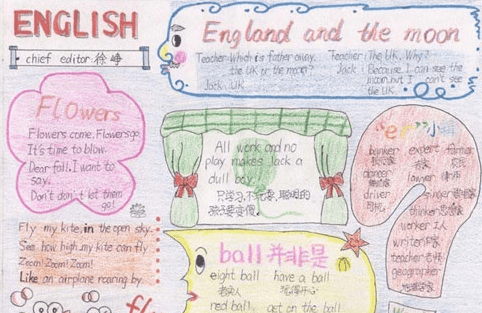 ENGLISH
chief editor:徐峥
England and the moon
Teacher: Which is father away,
the UK or the moon?
Jack: UK
Teacher: The UK. Why?
Jack: Because I can see the
moon, but I can't see
the UK.
Flowers
Flowers come, Flowers go
It's time to blow.
Dear fall, I want to
say,
Don't don't let them
go!
All work and no
play makes Jack a
dull boy.
只学习,不玩耍,聪明的
孩子要变傻.
"er"小词
banker
expert
farmer
银行家
专家
农民
dancer
lawyer 律师
舞蹈家
driver
singer 歌唱家
司机
thinker 思想家
worker 工人
writer 作家
teacher 老师
geographer
地理学家
Fly my kite, in the open sky.
See how high my kite can fly
Zoom! Zoom! Zoom!
Like an airplane roaring by.
ball 并非是
eight ball
have a ball
老实人
玩得开心
red ball
get on the ball